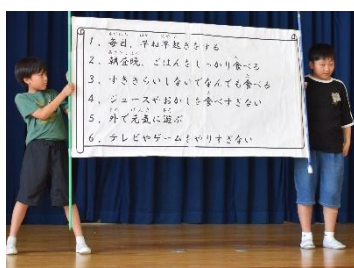 1. 毎日、早ね早起きをする
2. 朝昼晩、ごはんをしっかり食べる
3. すききらいしないでなんでも食べる
4. ジュースやおかしを食べすぎない
5. 外で元気に遊ぶ
6. テレビやゲームをやりすぎない